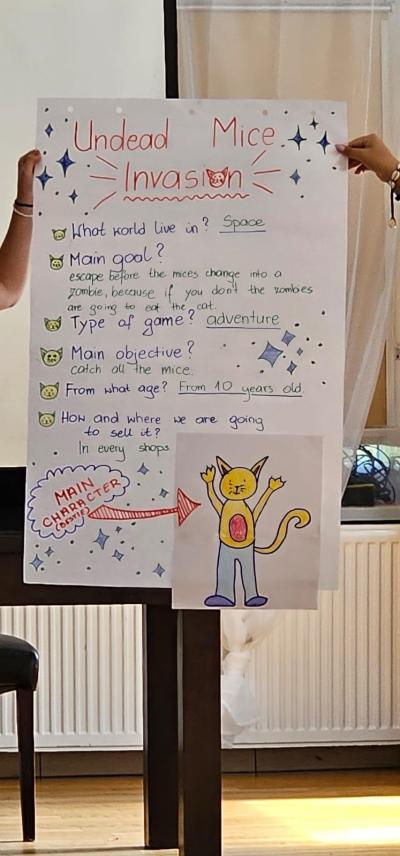 Undead Mice
Invasion
What world live in? Space
Main goal?
escape before the mices change into a
zombie, because if you don't the zombies
are going to eat the cat.
Type of game? adventure
Main objective?
catch all the mice.
From what age? From 10 years old.
How and where we are going
to sell it?
In every shops
MAIN
CHARACTER